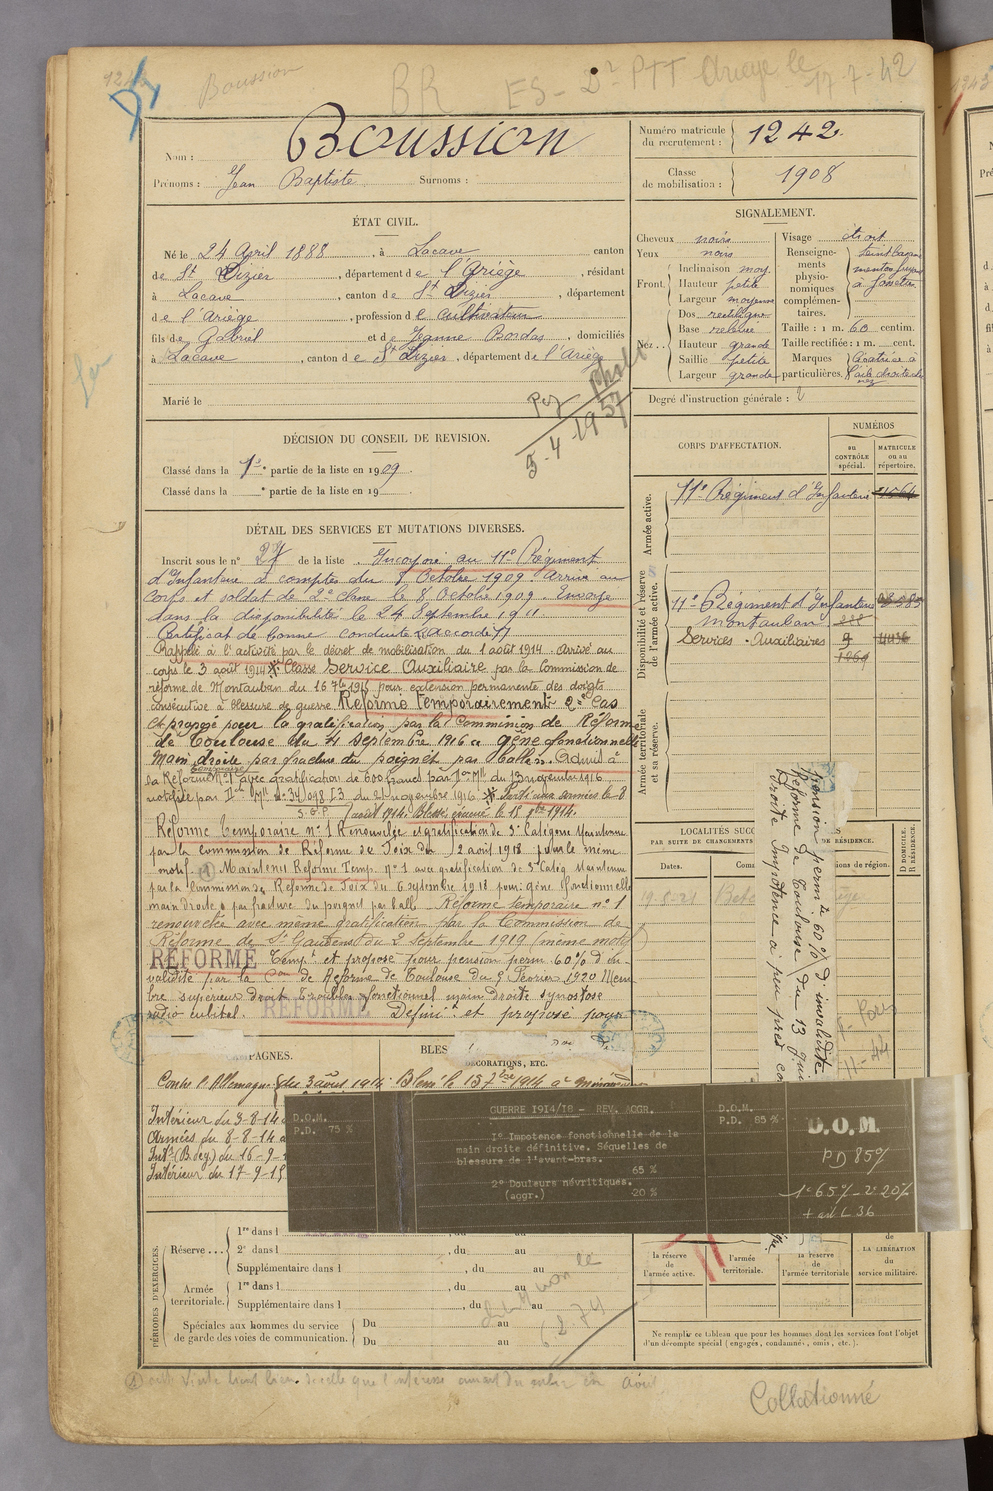 1242
Boussion
BR ES - Dr PTT Ariège le 17-7-42
Nom : Boussion
Prénoms : Jean Baptiste Surnoms :
Numéro matricule du recrutement : 1242.
Classe de mobilisation : 1908
ÉTAT CIVIL.
Né le 24 April 1888, à Lacave canton
de St Lizier, département de l'Ariège, résidant
à Lacave, canton de St Lizier, département
de l'Ariège, profession de cultivateur
fils de Gabriel et de Jeanne Bordas, domiciliés
à Lacave, canton de St Lizier, département de l'Ariège
Marié le
5-4-1957
SIGNALEMENT.
Cheveux noirs
Yeux noirs
Front. Inclinaison moy.
Hauteur petite
Largeur moyenne
Nez. Dos rectiligne
Base relevée
Hauteur grande
Saillie petite
Largeur grande
Visage étroit
Renseignements physionomiques complémentaires.
à fossette
Taille : 1 m. 60 centim.
Taille rectifiée : 1 m. cent.
Marques particulières. Cicatrice à l'aile droite du nez
Degré d'instruction générale : 2
DÉCISION DU CONSEIL DE REVISION.
Classé dans la 1re partie de la liste en 1909.
Classé dans la e partie de la liste en 19
CORPS D'AFFECTATION.
NUMÉROS
au CONTRÔLE spécial.
MATRICULE ou au répertoire.
Armée active.
11e Régiment d'Infanterie
Disponibilité et réserve de l'armée active.
11e Régiment d'Infanterie
Montauban
Services Auxiliaires 9
1069
Armée territoriale et sa réserve.
DÉTAIL DES SERVICES ET MUTATIONS DIVERSES.
Inscrit sous le n° 27 de la liste. Incorporé au 11e Régiment
d'Infanterie à compter du 7 Octobre 1909. Arrivé au
corps et soldat de 2e classe le 8 Octobre 1909. Envoyé
dans la disponibilité le 24 Septembre 1911.
Certificat de bonne conduite "Accordé"
Rappelé à l'activité par le décret de mobilisation du 1 août 1914. Arrivé au
corps le 3 août 1914 Classé Service Auxiliaire par la Commission de
réforme de Montauban du 16 7bre 1915 pour extension permanente des doigts
consécutive à blessure de guerre Réformé temporairement 2e Cas
et proposé pour la gratification par la Commission de Réforme
de Toulouse du 4 Septembre 1916 gêne fonctionnelle
main droite par fracture du poignet par balle. Admis à
la Réforme temporaire N°1 avec gratification de 600 francs par Don Mlle du 13 novembre 1916
notifiée par Don Mlle n° 34098 I 3 du 21 novembre 1916. Parti aux armées le 8
août 1914. Blessé évacué le 15 7bre 1914.
Réforme temporaire n° 1 Renouvelée et gratification de 3e Catégorie Maintenue
par la commission de Réforme de Foix du 2 août 1918 pour le même
motif. (1) Maintenu Réforme Temp. n° 1 avec gratification de 3e Catég. Maintenue
par la Commission de Réforme de Foix du 6 septembre 1918 pour : gêne fonctionnelle
main droite par fracture du poignet par balle. Réforme temporaire n° 1
renouvelée avec même gratification par la Commission de
Réforme de St Gaudens du 2 Septembre 1919 (même motif)
RÉFORMÉ Tempt et proposé pour pension perm. 60% d'in-
validité par la Con de Réforme de Toulouse du 9 Février 1920 Mem-
bre supérieur droit Troubles fonctionnel main Droite synostose
radio cubital. RÉFORMÉ Définif et proposé pour
pension permte 60% d'invalidité
Réforme de Toulouse du 13
Droite Impotence à peu près
LOCALITÉS SUCC
PAR SUITE DE CHANGEMENTS DE RÉSIDENCE.
Dates.
Com
ions de région.
D. DOMICILE.
R. RÉSIDENCE.
19-5-21
11-44
MPAGNES.
BLES
DÉCORATIONS, ETC.
Contre l'Allemagne du 3 août 1914 Blessé le 15 7bre 1914 à
Intérieur du 3-8-14
Armées du 8-8-14
Intr (B. de g.) du 16-9-1
Intérieur du 17-9-15
D.O.M.
P.D. 75 %
GUERRE 1914/18 - REV. AGGR.
1° Impotence fonctionnelle de la
main droite définitive. Séquelles de
blessure de l'avant-bras.
65 %
2° Douleurs névritiques.
(aggr.) 20 %
D.O.M.
P.D. 85 %
D.O.M.
PD 85%
1° 65% - 2° 20%
+ art L 36
PÉRIODES D'EXERCICES.
Réserve... 1re dans l
2e dans l , du au
Supplémentaire dans l , du au
Armée territoriale. 1re dans l , du au
Supplémentaire dans l , du au
Spéciales aux hommes du service de garde des voies de communication. Du au
Du au
la réserve de l'armée active.
l'armée territoriale.
la réserve de l'armée territoriale
de LA LIBÉRATION du service militaire.
Ne remplir ce tableau que pour les hommes dont les services font l'objet
d'un décompte spécial (engagés, condamnés, omis, etc.).
Collationné